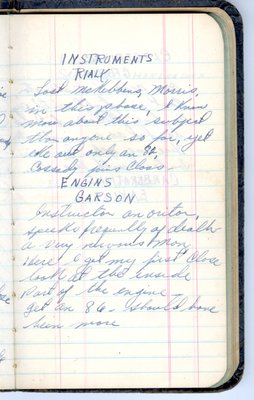 INSTRUMENTS
RIALY
Lost McKibbins, Morris,
in this phase, I know
more about this subject
than anyone so far, yet
come out only an 82,
Cossedy joins Class.
ENGINS
GARSON
Instructor an outor,
speeks frequently of death
a very nervous man
Here I get my first close
look at the inside
Part of the engine
get an 86 - should have
been more